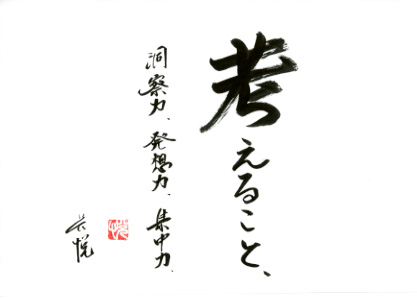 考えること、
洞察力、発想力、集中力、
悦